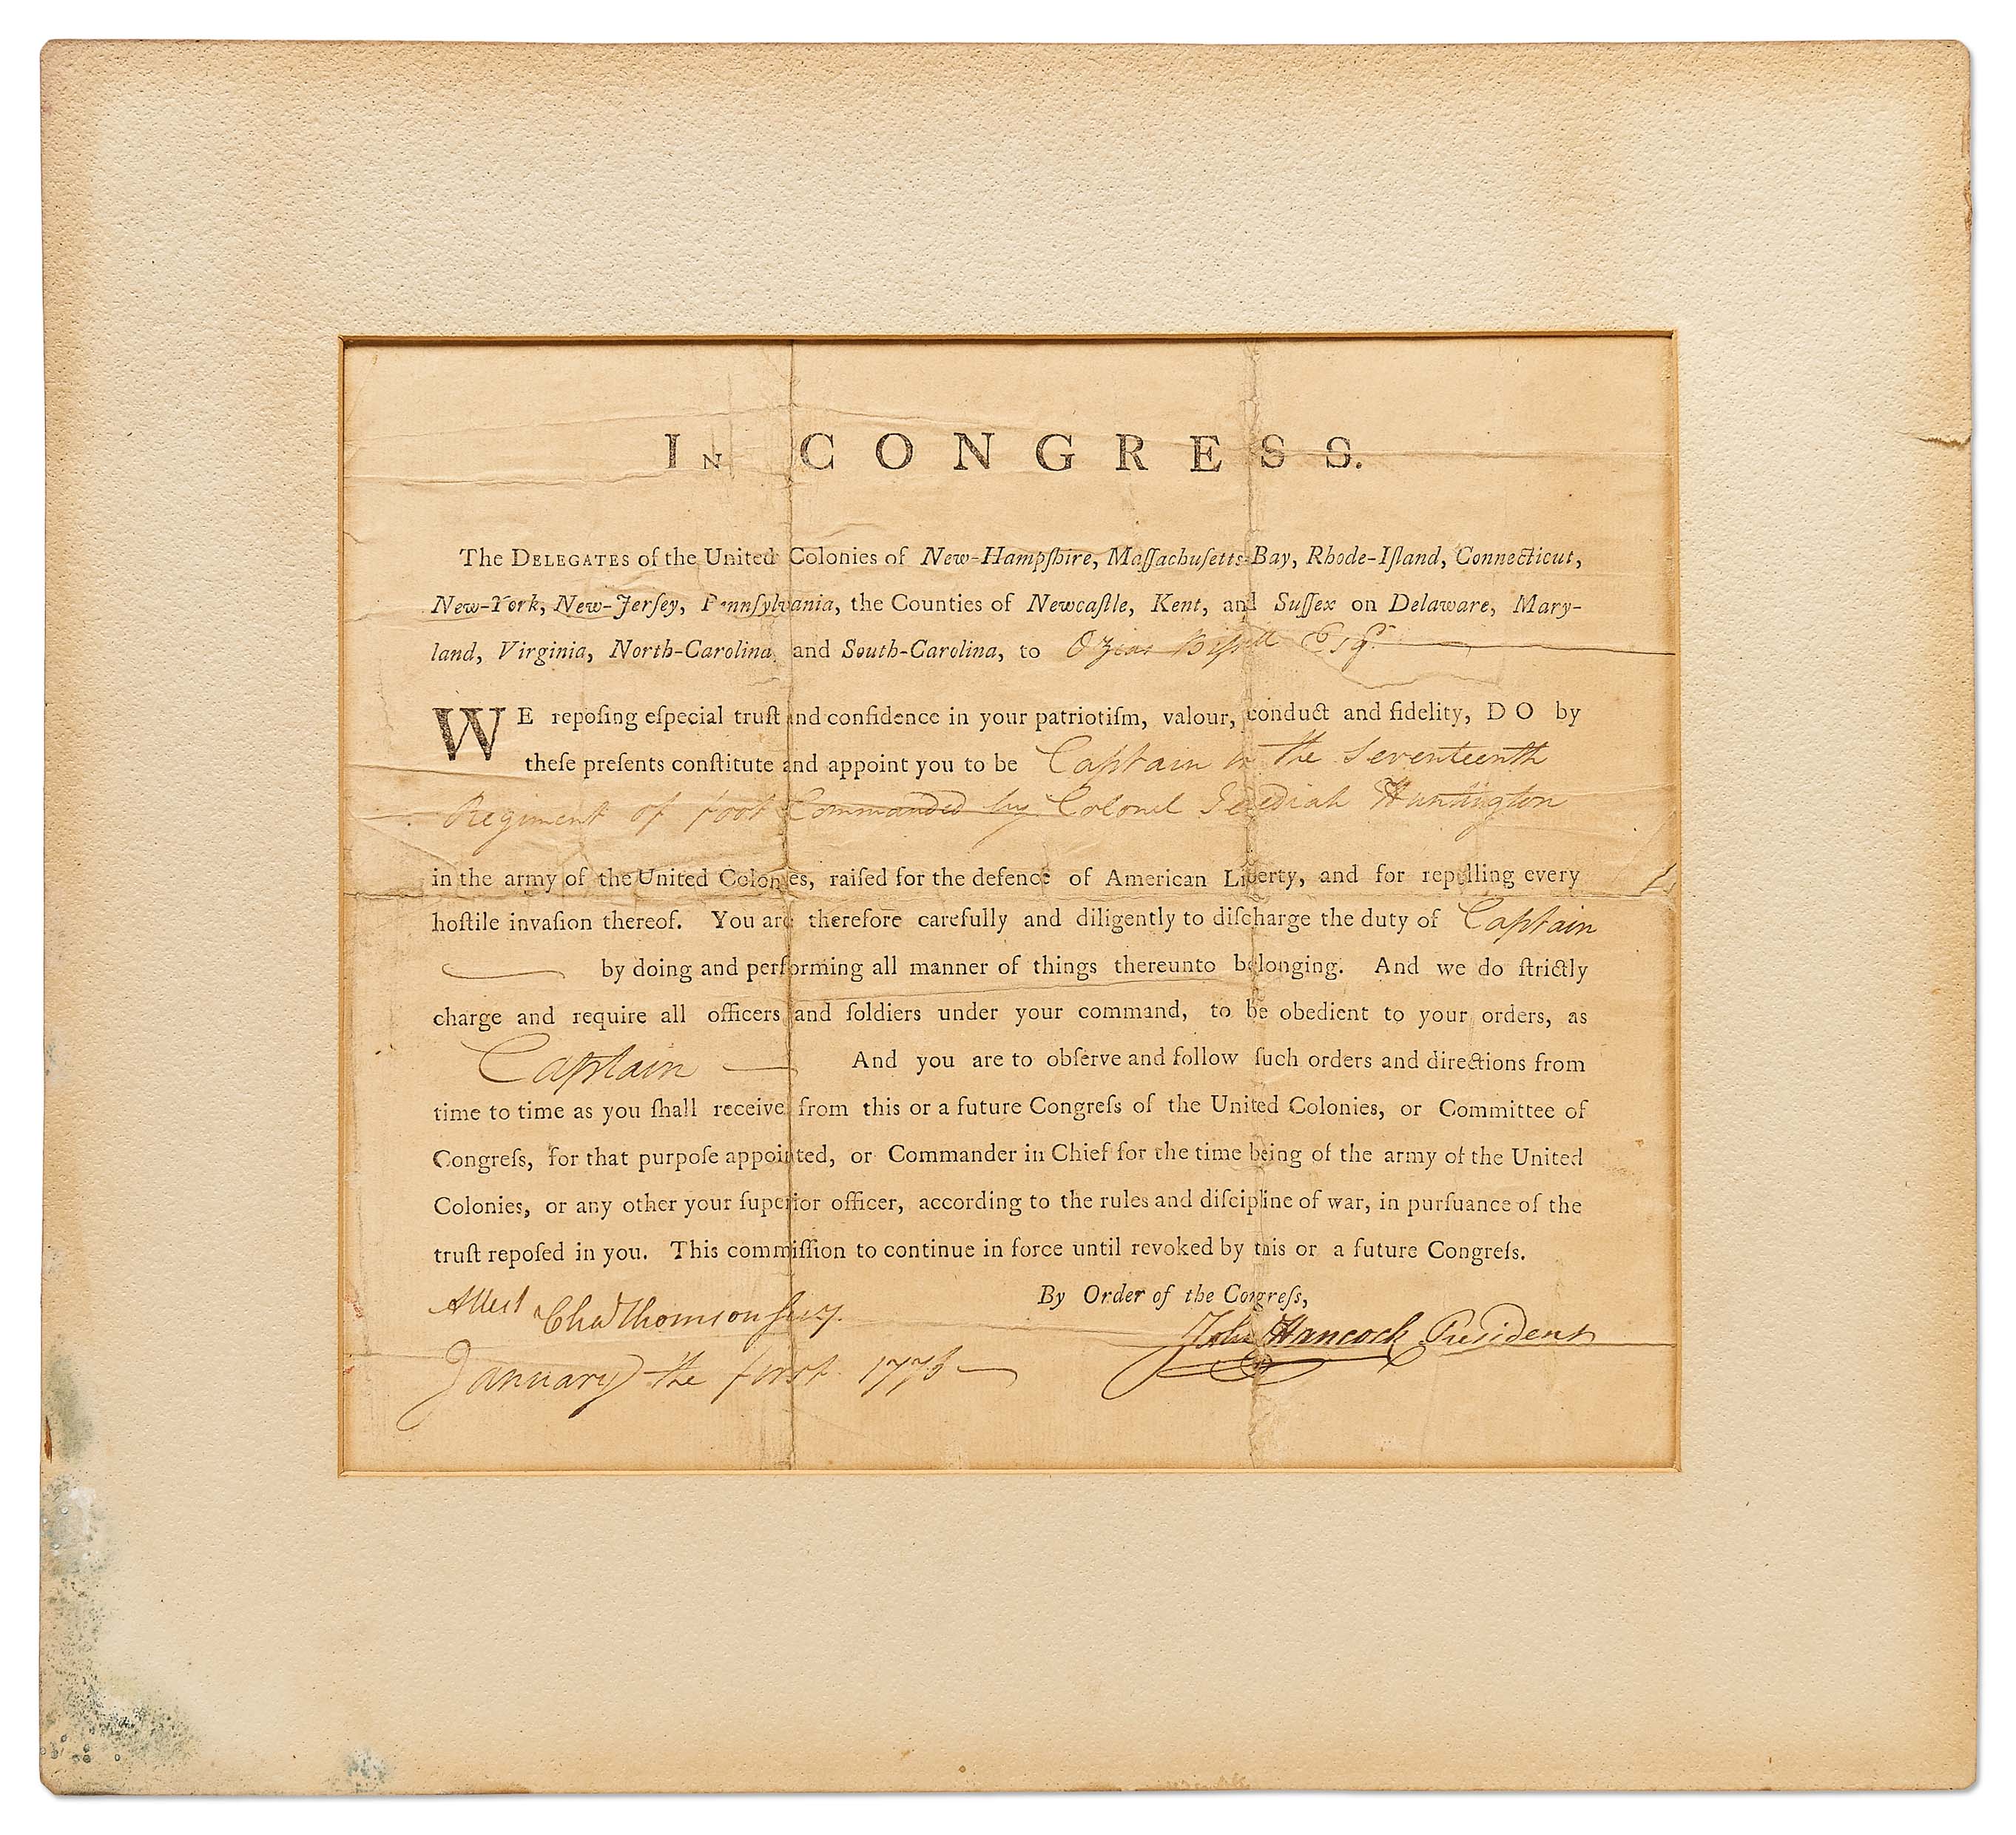 IN CONGRESS.
The DELEGATES of the United Colonies of New-Hampſhire, Maſſachuſetts-Bay, Rhode-Iſland, Connecticut,
New-York, New-Jerſey, Pennſylvania, the Counties of Newcaſtle, Kent, and Suſſex on Delaware, Mary-
land, Virginia, North-Carolina and South-Carolina, to Ozias Bissell Esqr.
WE repoſing eſpecial truſt and confidence in your patriotiſm, valour, conduct and fidelity, DO by
theſe preſents conſtitute and appoint you to be Captain in the Seventeenth
Regiment of foot Commanded by Colonel Jedediah Huntington
in the army of the United Colonies, raiſed for the defence of American Liberty, and for repelling every
hoſtile invaſion thereof. You are therefore carefully and diligently to diſcharge the duty of Captain
by doing and performing all manner of things thereunto belonging. And we do ſtrictly
charge and require all officers and ſoldiers under your command, to be obedient to your orders, as
Captain — And you are to obſerve and follow ſuch orders and directions from
time to time as you ſhall receive from this or a future Congreſs of the United Colonies, or Committee of
Congreſs, for that purpoſe appointed, or Commander in Chief for the time being of the army of the United
Colonies, or any other your ſuperior officer, according to the rules and diſcipline of war, in purſuance of the
truſt repoſed in you. This commiſſion to continue in force until revoked by this or a future Congreſs.
By Order of the Congreſs,
Attest Cha Thomson secy.
John Hancock President
January the first 1776